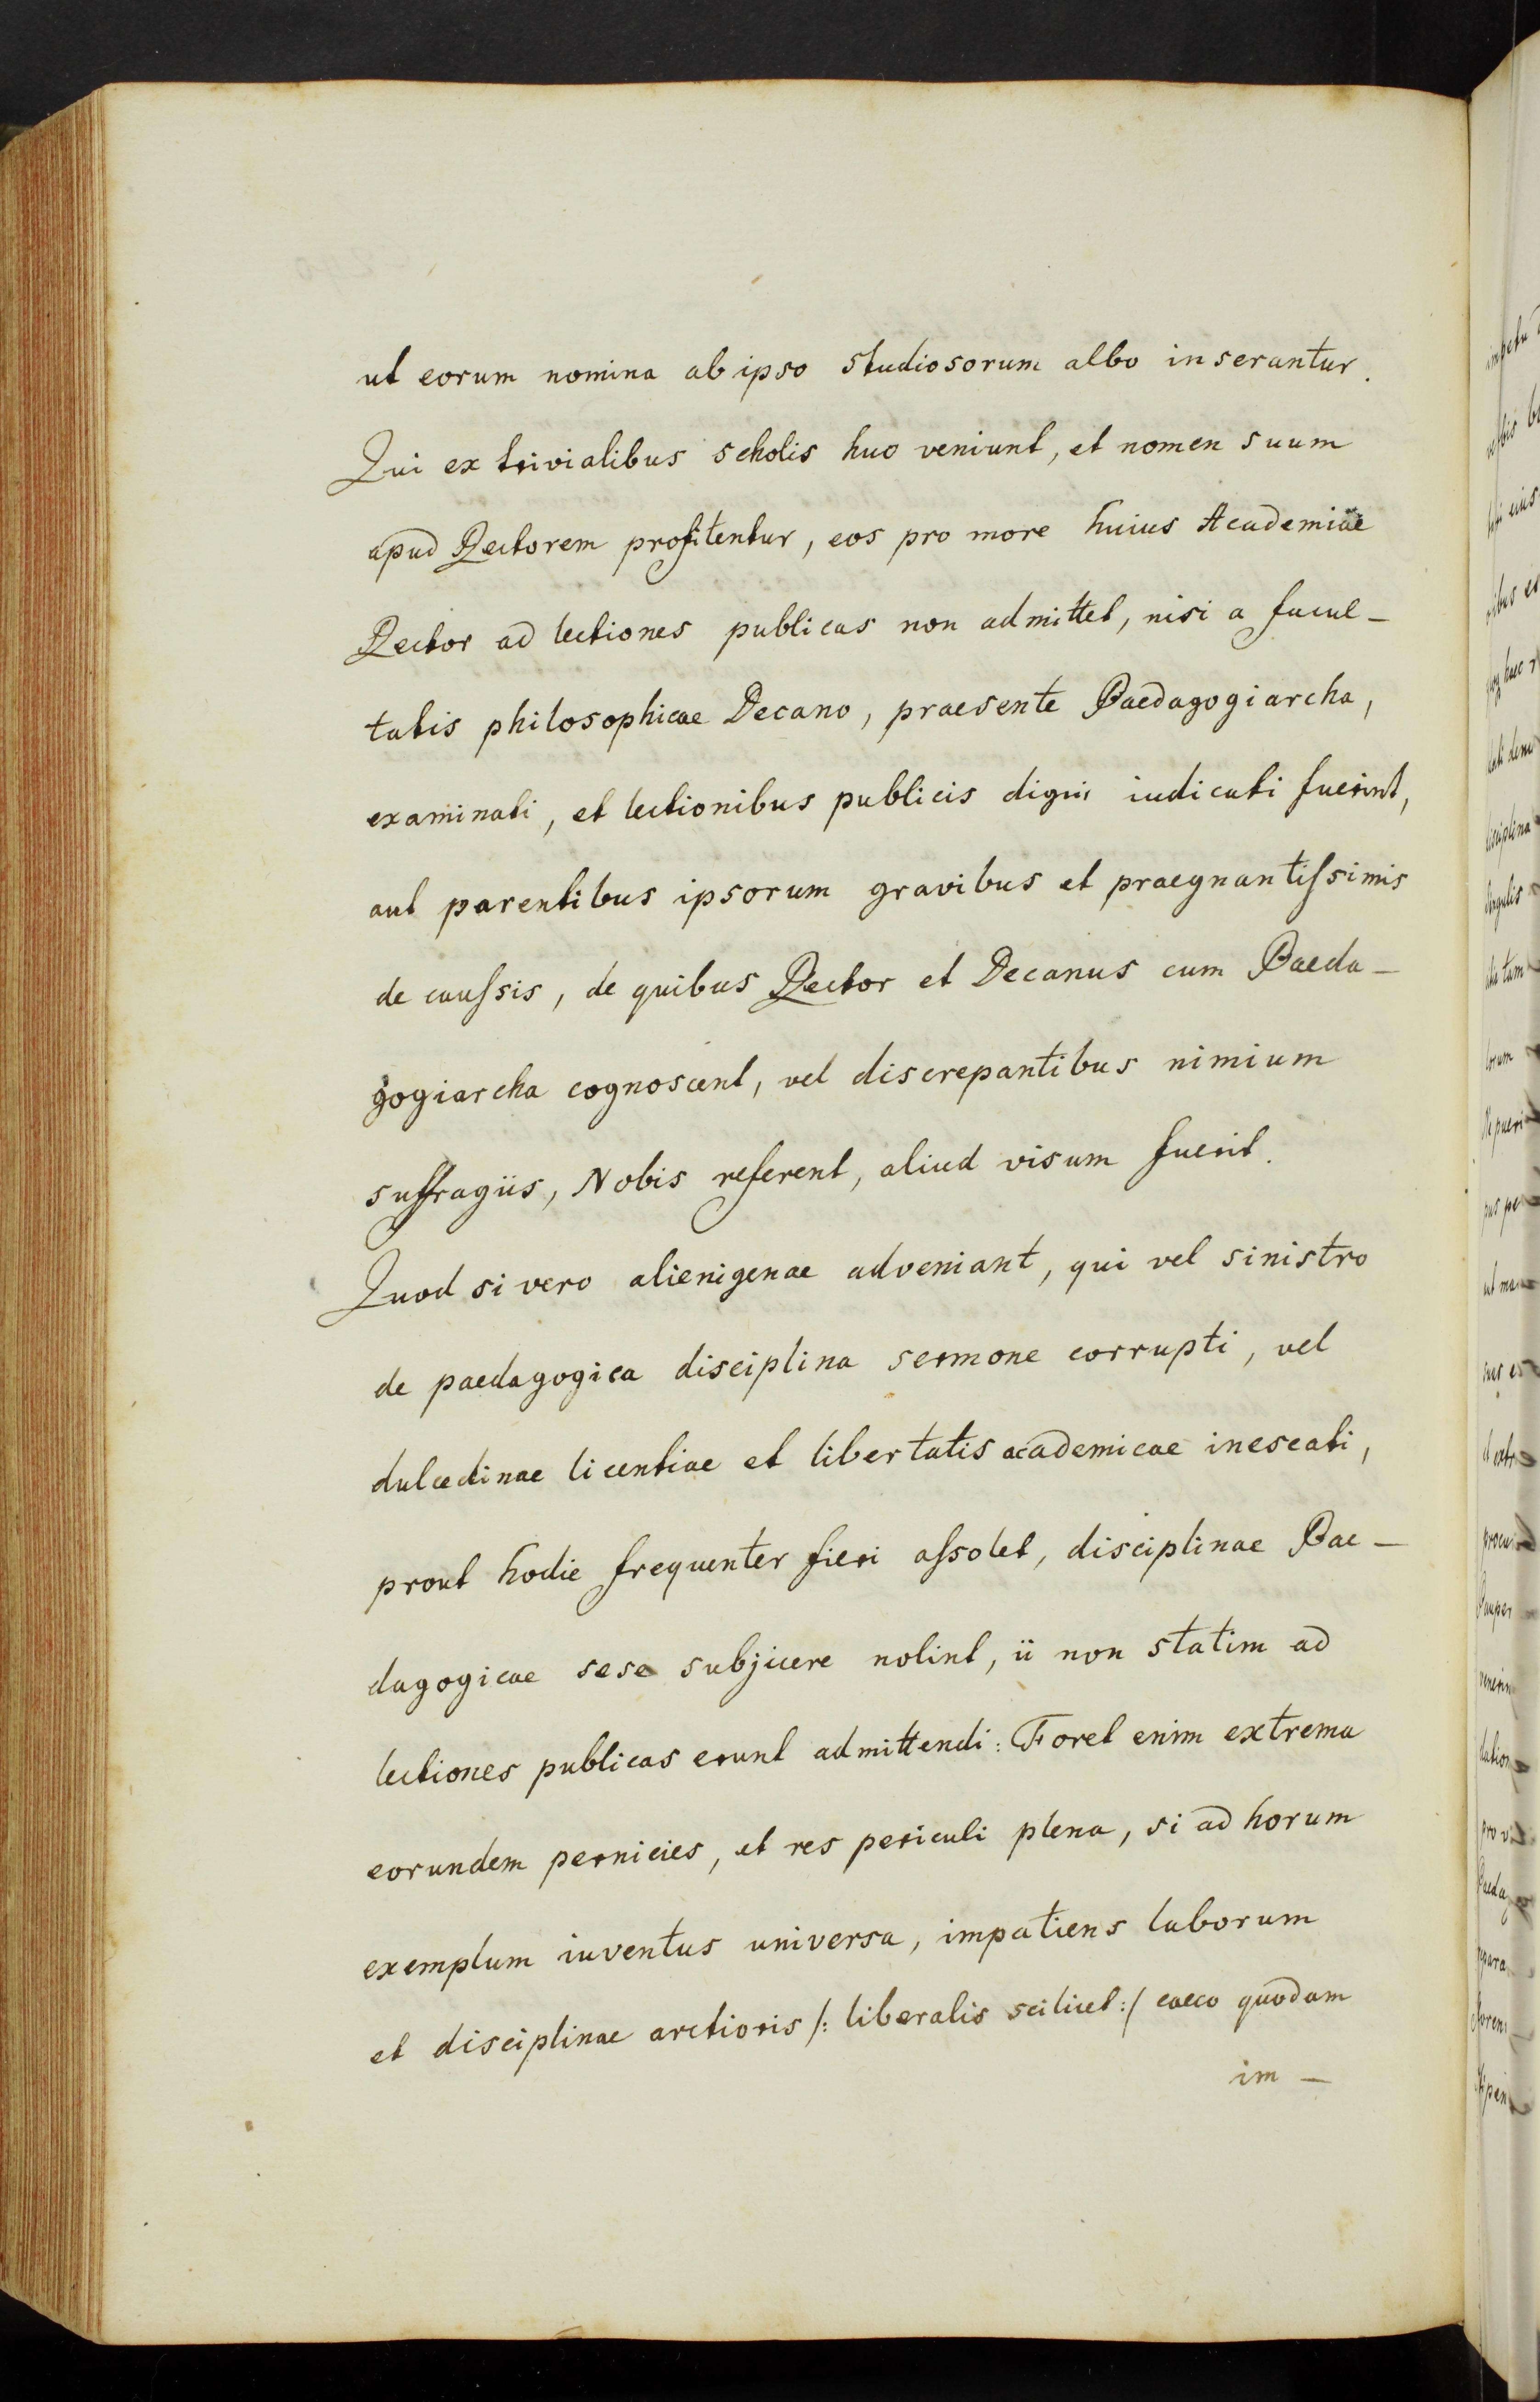 ut eorum nomina ab ipso studiosorum albo inserantur.
Qui ex trivialibus scholis huc veniunt, et nomen suum
apud Rectorem profitentur, eos pro more huius Academiae
Rector ad lectiones publicas non admittet, nisi a facul-
tatis philosophicae Decano, praesente Paedagogiarcha,
examinati, et lectionibus publicis digni iudicati fuerint,
aut parentibus ipsorum gravibus et praegnantissimis
de caussis, de quibus Rector et Decanus cum Paeda-
gogiarcha cognoscent, vel discrepantibus nimium
suffragiis, Nobis referent, aliud visum fuerit.
Quod si vero alienigenae adveniant, qui vel sinistro
de paedagogica disciplina sermone corrupti, vel
dulcedinae licentiae et libertatis academicae inescati,
prout hodie frequenter fieri assolet, disciplinae Pae-
dagogicae sese subjicere nolint, ii non statim ad
lectiones publicas erunt admittendi: Foret enim extrema
eorundem pernicies, et res periculi plena, si ad horum
exemplum iuventus universa, impatiens laborum
et disciplinae arctioris /: liberalis scilicet :/ caeco quodam
im-